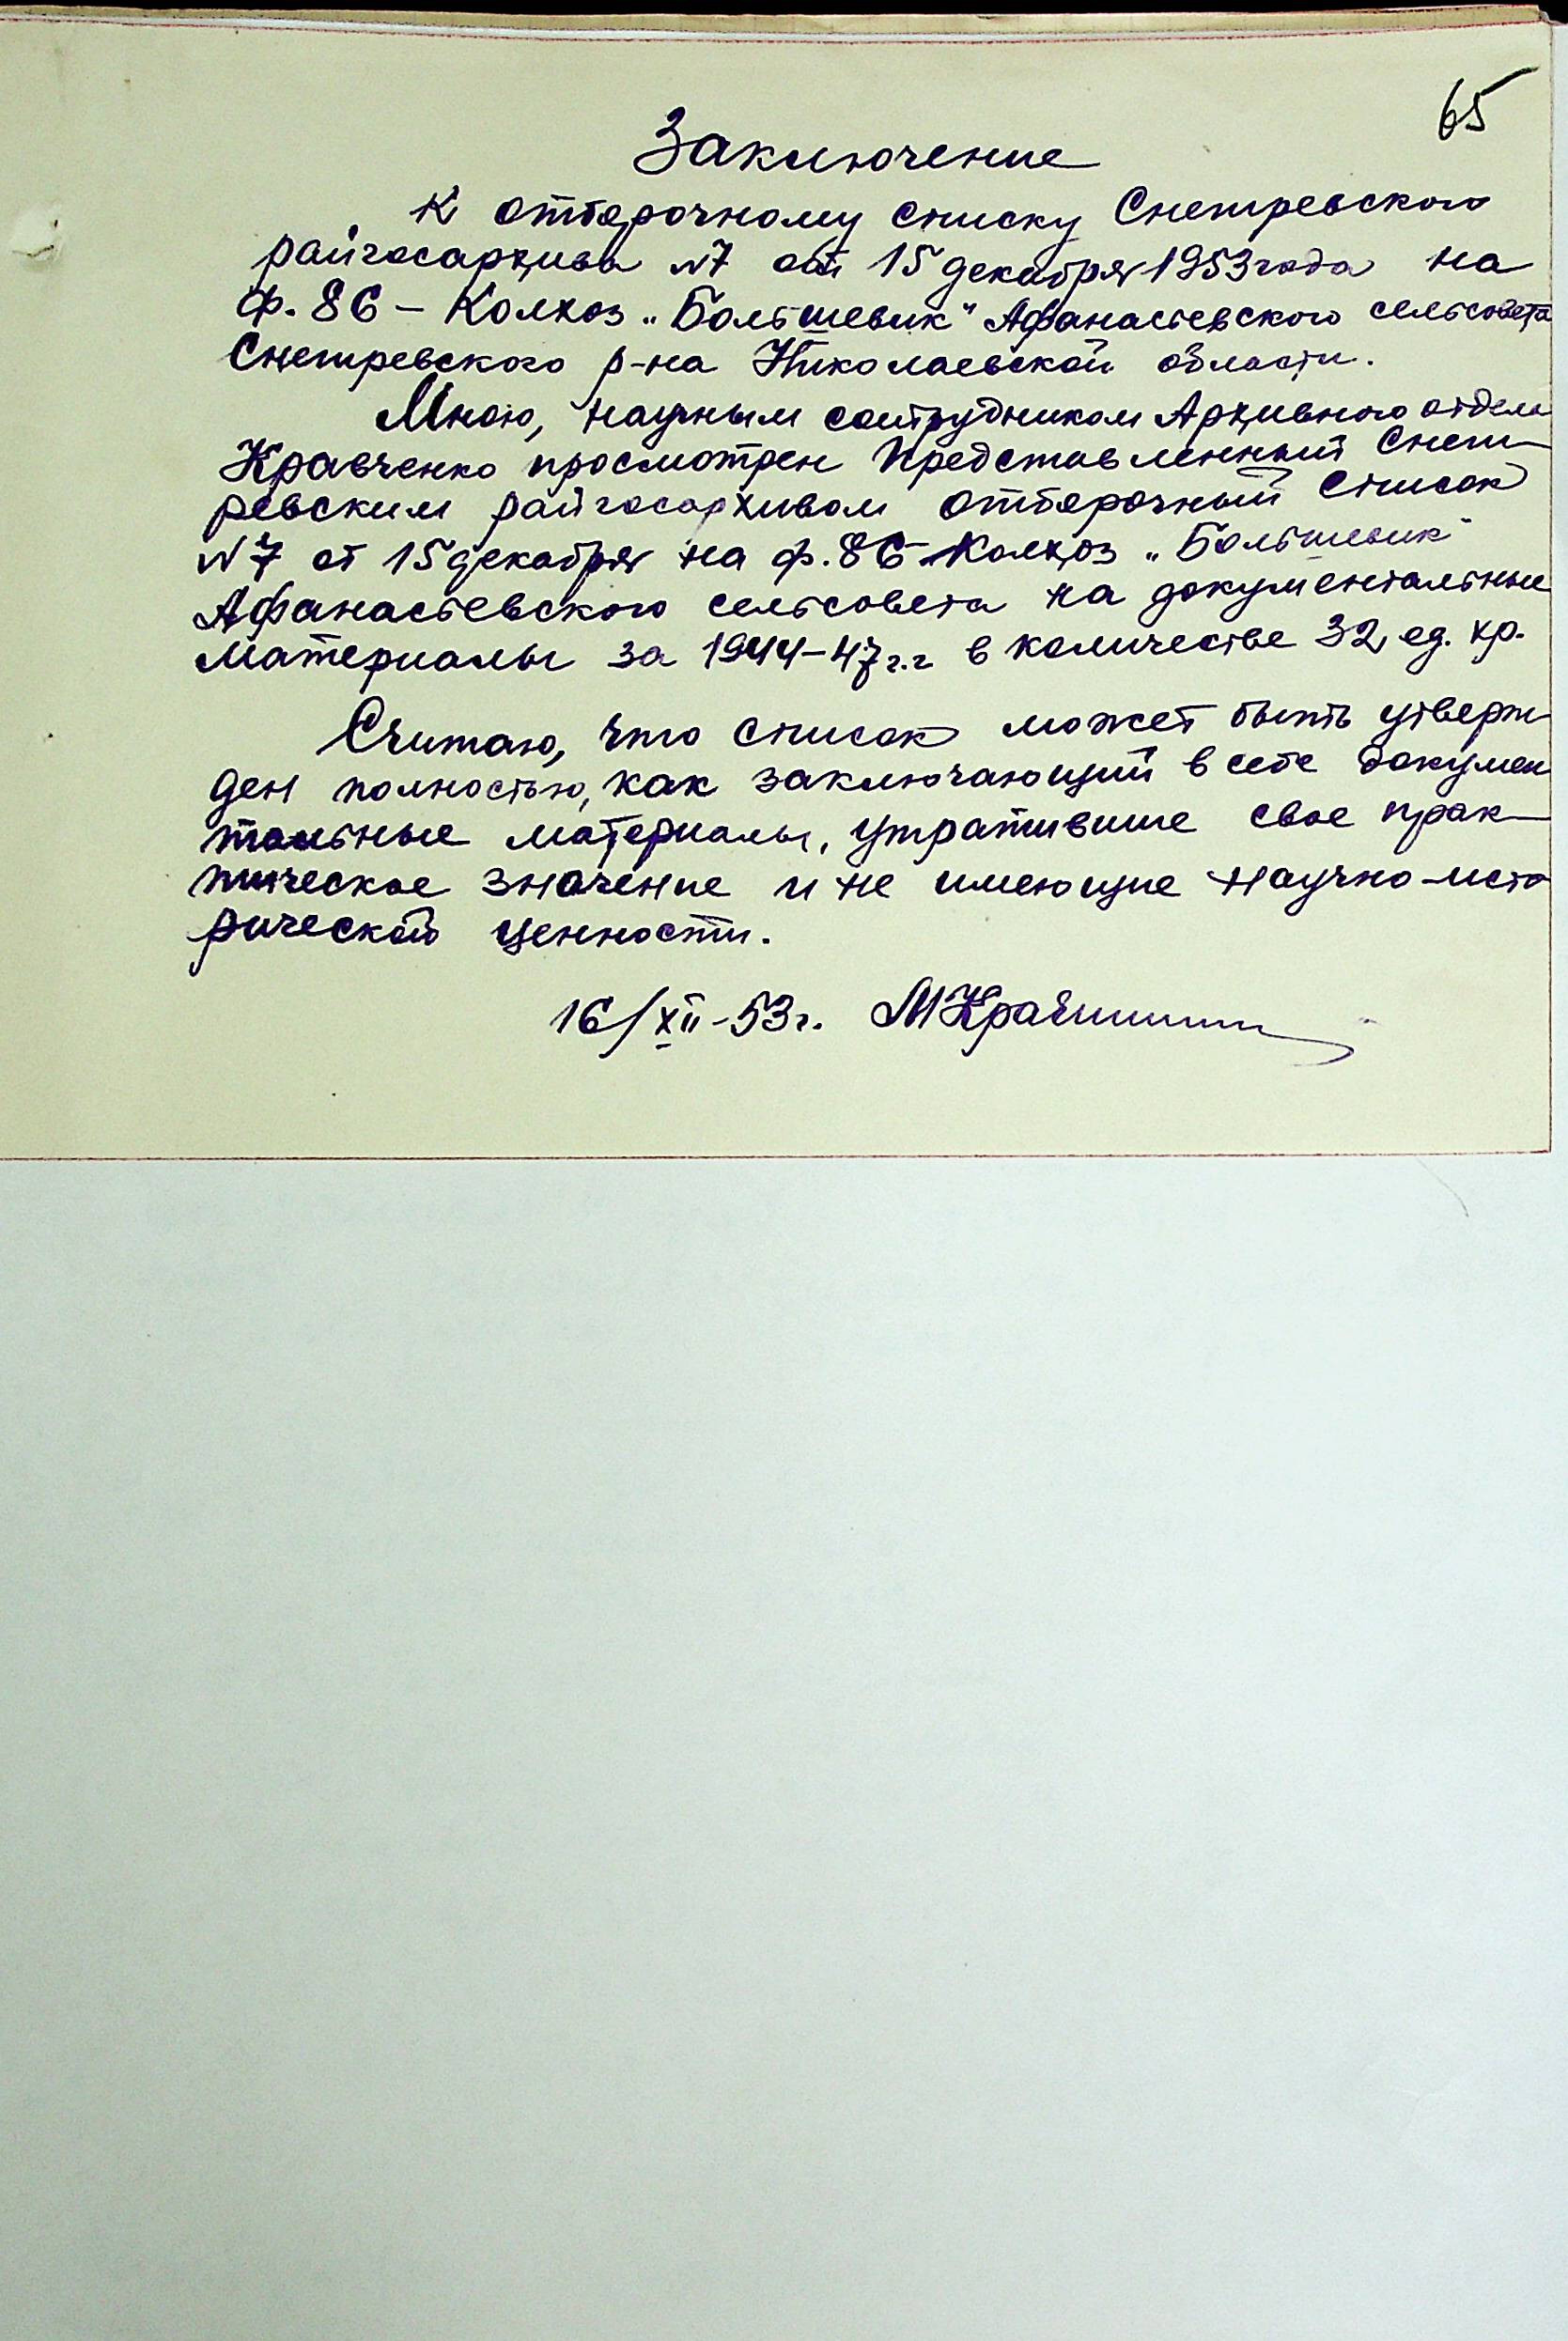 65
Заключение
К отборочному списку Снегиревского
райгосархива №7 от 15 декабря 1953 года на
ф. 86 – Колхоз „Большевик" Афанасьевского сельсовета
Снегиревского р-на Николаевской области.
Мною, научным сотрудником Архивного отдела
Кравченко просмотрен представленный Снеги-
ревским райгосархивом отборочный список
№7 от 15 декабря на ф. 86 – Колхоз „Большевик"
Афанасьевского сельсовета на документальные
материалы за 1944–47 г.г. в количестве 32 ед. хр.
Считаю, что список может быть утверж-
ден полностью, как заключающий в себе докумен
тальные материалы, утратившие свое прак-
тическое значение и не имеющие научно-исто
рической ценности.
16/XII-53г.